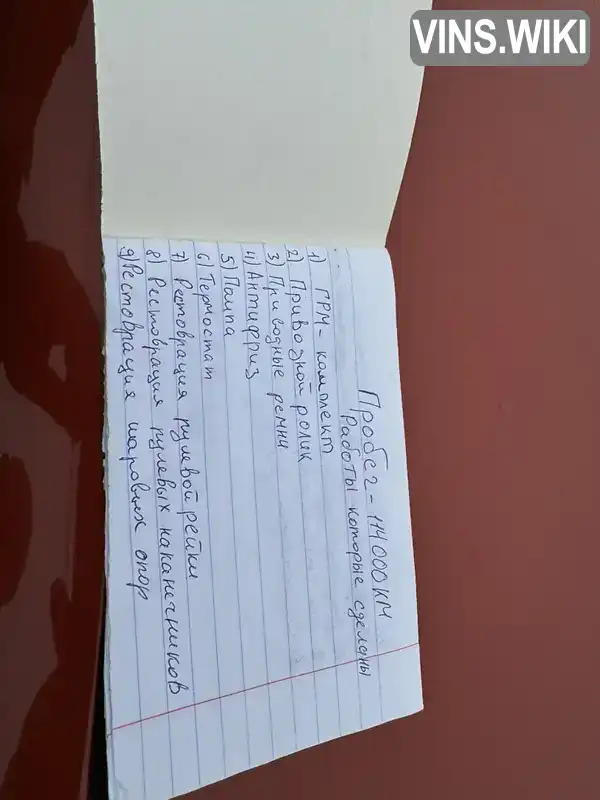 VINS.WIKI
Пробег - 114000 КМ
Работы которые сделаны
1) ГРМ - комплект
2) Приводной ролик
3) Приводные ремни
4) Антифриз
5) Помпа
6) Термостат
7) Рестоврация рулевой рейки
8) Рестоврация рулевых наканечников
9) Рестоврация шаровых опор